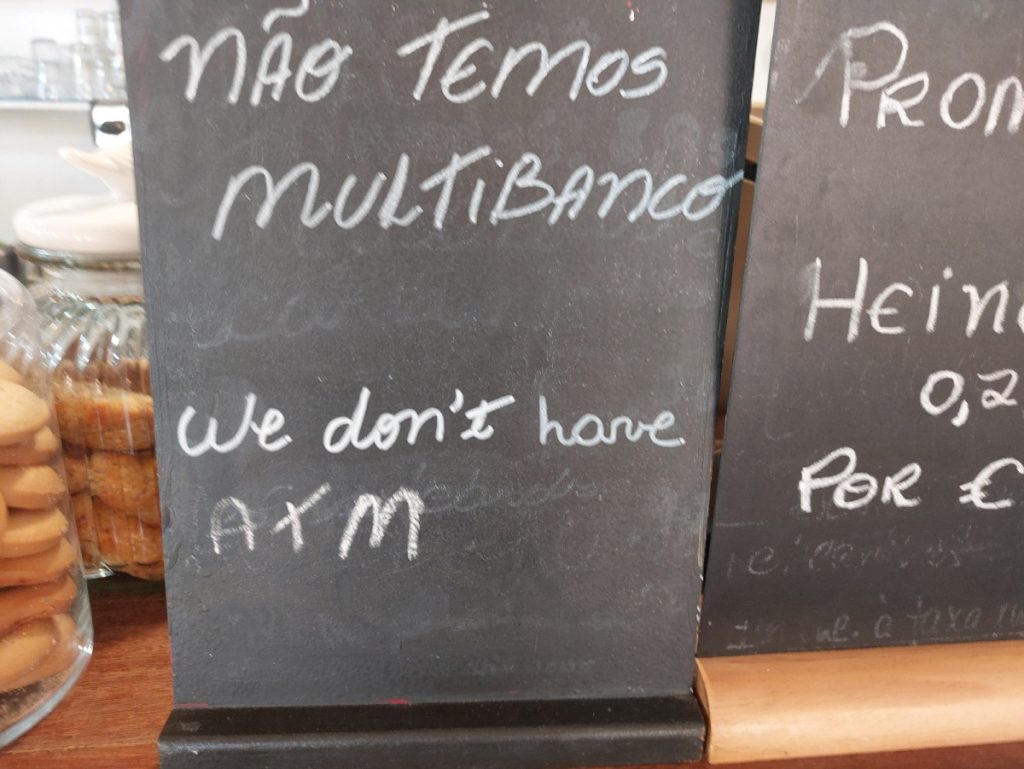 NÃO TEMOS
MULTIBANCO
We don't have
ATM
HEIN
0,2
POR €